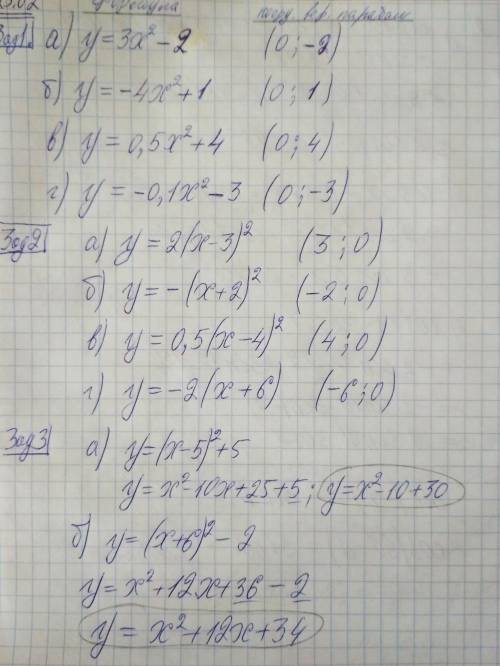 Формула коорд. в.в. параболы
Зад1. а) y=3x²-2 (0;-2)
б) y=-4x²+1 (0;1)
в) y=0,5x²+4 (0;4)
г) y=-0,1x²-3 (0;-3)
Зад2 а) y=2(x-3)² (3;0)
б) y=-(x+2)² (-2;0)
в) y=0,5(x-4)² (4;0)
г) y=-2(x+6) (-6;0)
Зад3 а) y=(x-5)²+5
y=x²-10x+25+5; y=x²-10+30
б) y=(x+6)²-2
y=x²+12x+36-2
y=x²+12x+34